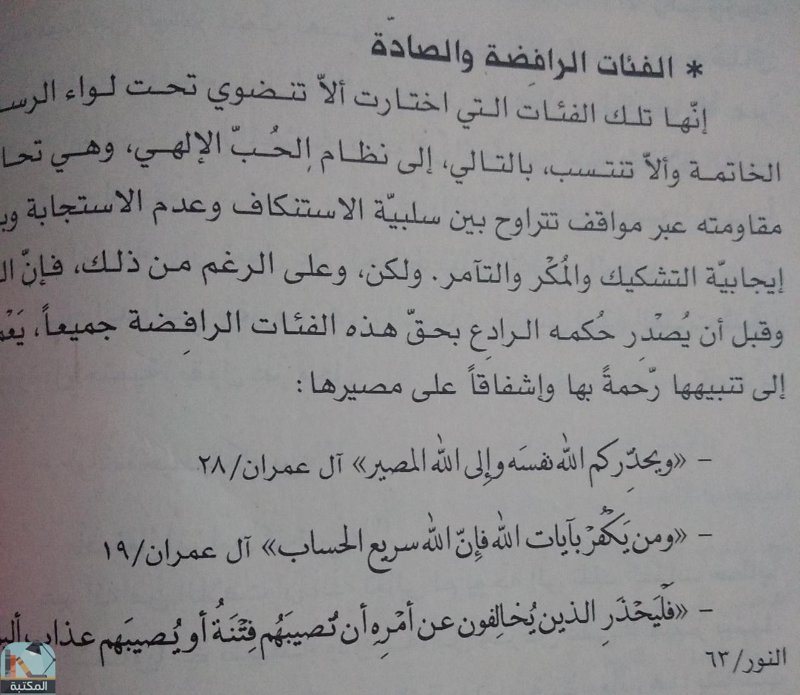 * الفئات الرافِضة والصادّة
إنّها تلك الفئات التي اختارت ألاّ تنضوي تحت لواء الرسا
الخاتمة وألاّ تنتسب، بالتالي، إلى نظام الحُبّ الإلهي، وهي تحا
مقاومته عبر مواقف تتراوح بين سلبيّة الاستنكاف وعدم الاستجابة وب
إيجابيّة التشكيك والمُكْر والتآمر. ولكن، وعلى الرغم من ذلك، فإنّ ال
وقبل أن يُصْدِر حُكمه الرادِع بحقّ هذه الفئات الرافِضة جميعاً، يَعْم
إلى تنبيهها رّحمةً بها وإشفاقاً على مصيرها:
– «ويحذِّركم الله نفسَه وإلى الله المصير» آل عمران/٢٨
– «ومن يَكْفُرْ بآيات الله فإنّ الله سريع الحساب» آل عمران/١٩
– «فَلْيَحْذَرِ الذين يُخالِفون عن أمْرِهِ أن تُصيبَهُم فِتْنَةُ أو يُصيبَهم عذاب أليـ
النور/٦٣
المكتبة